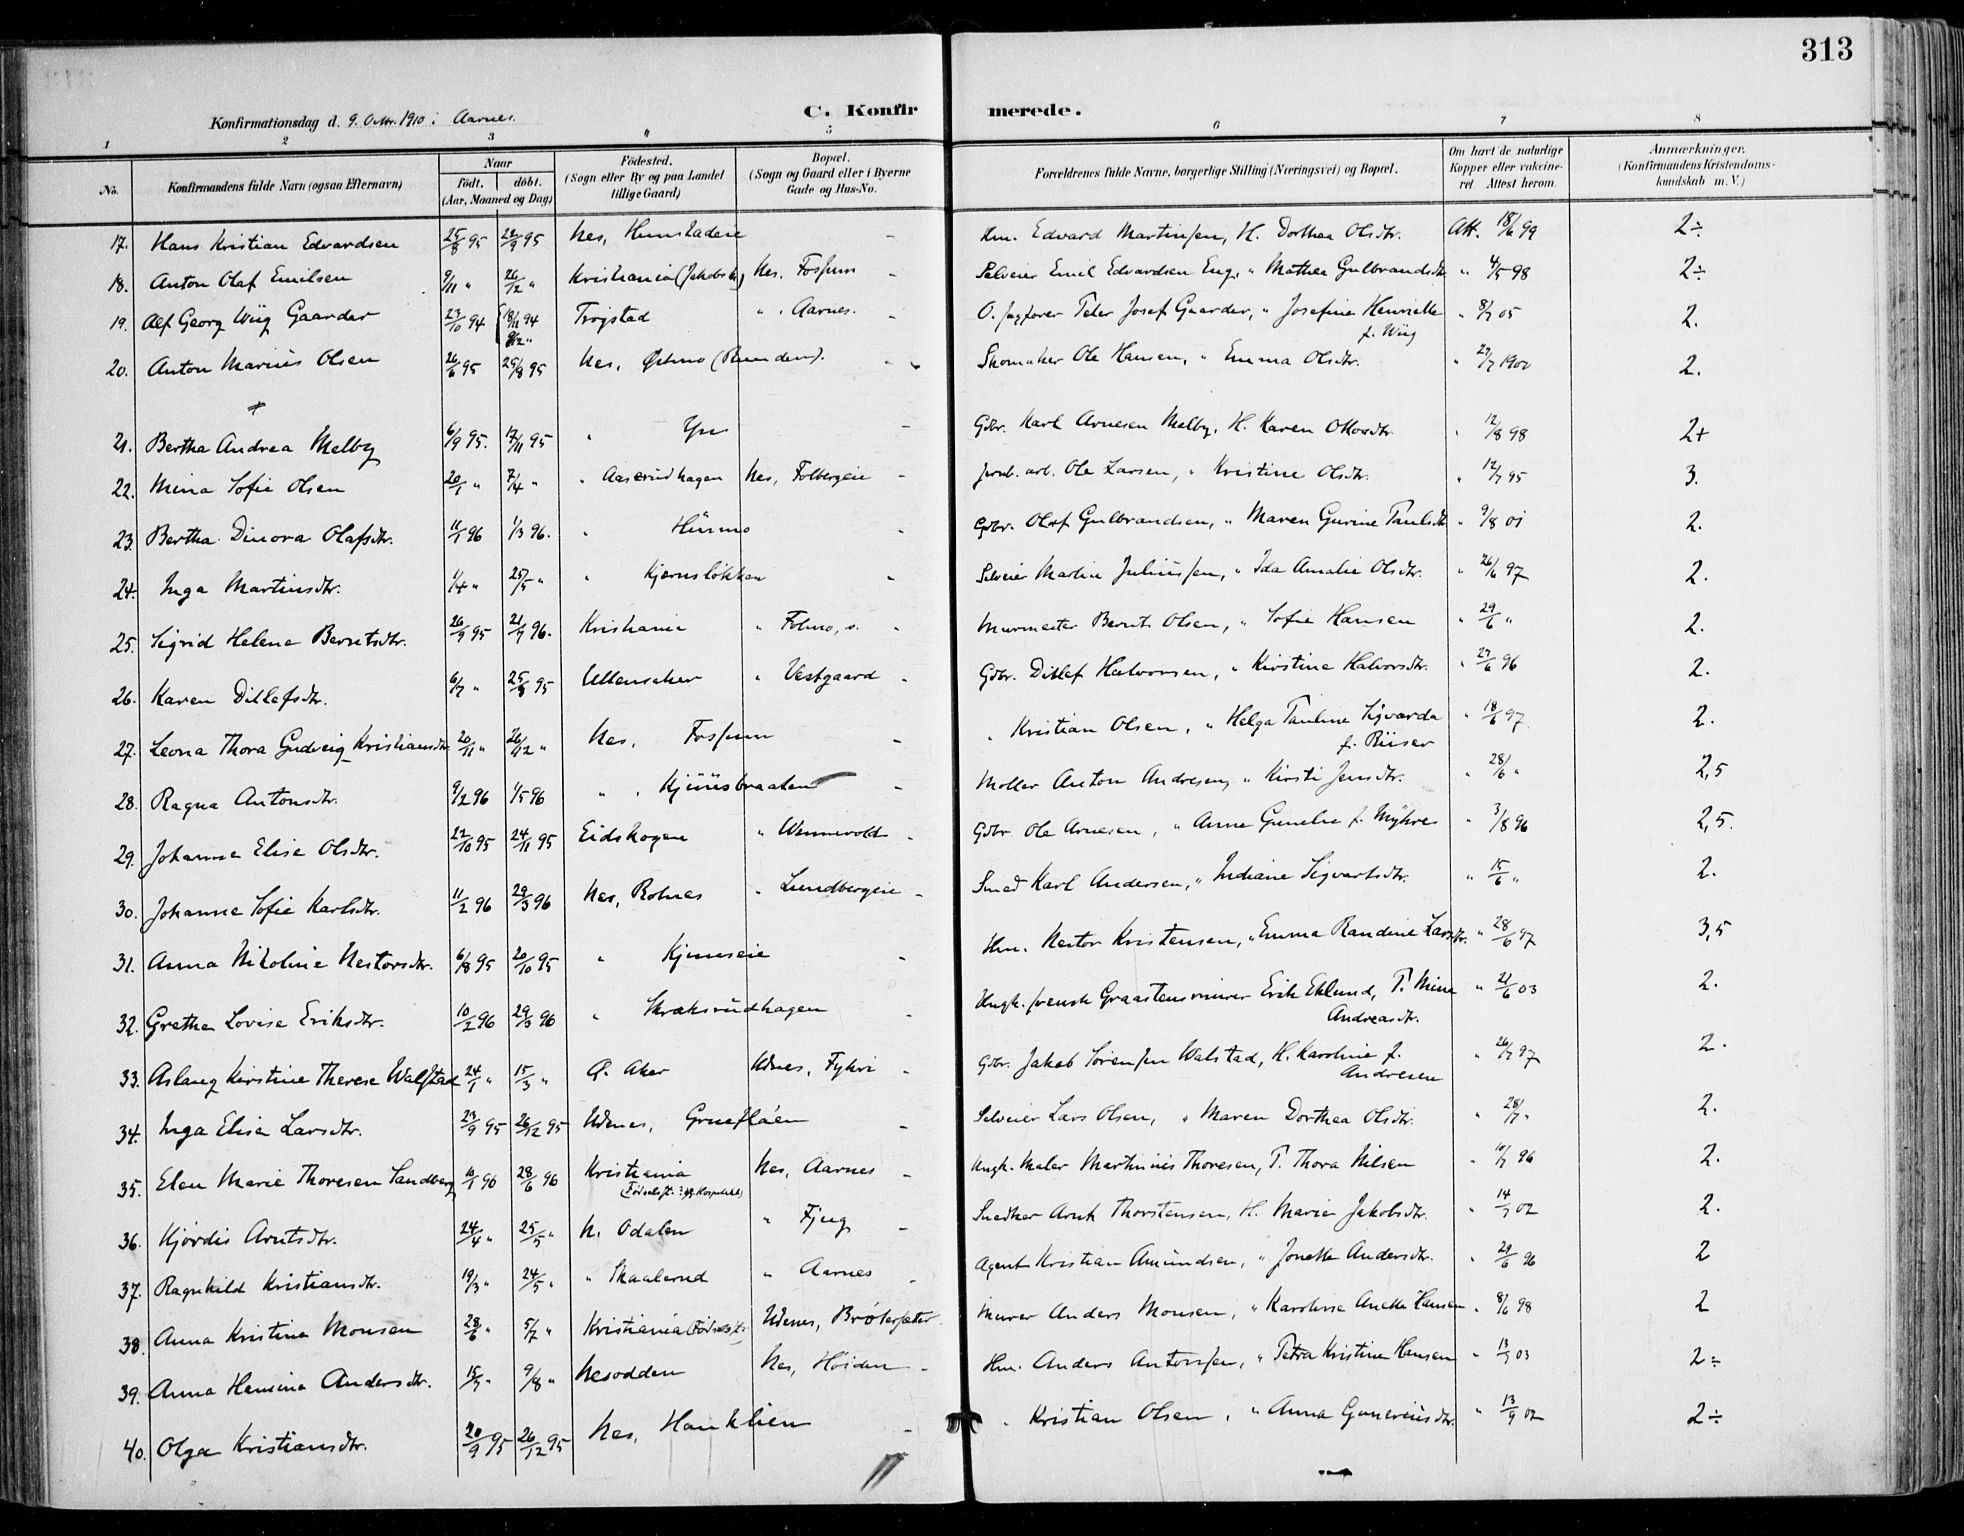 313
C. Konfir merede.
Konfirmationsdag d. 9. Oktbr. 1910 i Aarnes.
1 2 3 4 5 6 7 8
No. Konfirmandens fulde Navn (ogsaa Efternavn) Naar født. døbt. (Aar, Maaned og Dag) Fødested. (Sogn eller By og paa Landet tillige Gaard) Bopæl. (Sogn og Gaard eller i Byerne Gade og Hus-No. Forældrenes fulde Navne, borgerlige Stilling (Næringsvei) og Bopæl. Om havt de naturlige Kopper eller vakcineret Attest herom. Anmærkninger. (Konfirmandens Kristendomskundskab m. V.)
17. Hans Kristian Edvardsen 25/8 95 22/9 95 Nes, - Hm. Edvard Martinsen, H. Dorthea Olsdtr. Att. 18/6 99 2÷
18. Anton Olaf Emilsen 9/11 " 26/12 " Kristiania (Jakobs k.) Nes, Fossum - Selveier Emil Edvardsen Eng, " Mathea Gulbrandsdtr. " 4/5 98 2÷
19. Alf Georg Wiig Gaarder 23/10 94 18/11 94 Trøgstad " Aarnes. - Peter Josef Gaarder, " Josefine Henriette f. Wiig " 8/7 05 2.
20. Anton Marius Olsen 26/6 95 25/8 95 Nes, Østmo - Skomaker Ole Hansen, " Emma Olsdtr. " 27/7 1900 2.
21. Bertha Andrea Melby 6/9 95. 17/11 95 " - Gdbr. Karl Arnesen Melby, H. Karen Ottosdtr. " 12/8 98 2+
22. Mina Sofie Olsen 20/1 " 7/4 " " Aaserudhagen Nes, Folbergeie - Jernb. arb. Ole Larsen, " Kristine Olsdtr. " 12/7 95 3.
23. Bertha Dinora Olafsdtr. 11/1 96 1/3 96. " Hunmo - Gdbr. Olaf Gulbrandsen, " Maren Gurine Paulsdtr. " 9/8 01 2.
24. Inga Martinsdtr. 1/4 " 25/5 " " Kjernsløkken - Selveier Martin Juliussen, " Ida Amalie Olsdtr. " 26/6 97 2.
25. Sigrid Helene Berntsdtr. 26/9 95 21/9 96. Kristiania " Folmo, s. - Murmester Bernt Olsen, " Sofie Hansen " 29/6 " 2.
26. Karen Ditlefsdtr. 6/7 " 25/8 95 Ullensaker " Vestgaard - Gdbr. Ditlef Halvorsen, " Kirstine Halvorsdtr. " 27/6 96 2.
27. Leona Thora Gudveig Kristiansdtr. 20/11 " 26/12 " Nes, Fossum - " Kristian Olsen, " Helga Pauline Sigvarda f. Riiser " 18/6 97 2.
28. Ragna Antonsdtr. 9/2 96 1/5 96 " Kjuusbraaten - Møller Anton Andresen, " Kirsti Jensdtr. " 28/6 " 2,5
29. Johanne Elise Olsdtr. 22/10 95 24/11 95 Eidskogen " Wennevold - Gdbr. Ole Arnesen, " Anne Gunelie f. Myhre " 3/8 96 2,5.
30. Johanne Sofie Karlsdtr. 11/2 96 29/3 96 Nes, Rotnes " Lundbergeie - Smed Karl Andersen, " Indiane Sigvartsdtr. " 15/6 " 2.
31. Anna Nikoline Nestorsdtr. 6/8 95 20/10 95 " Kjunseie - Hm. Nestor Kristensen, " Emma Randine Larsdtr. " 28/6 97 3,5
32. Grethe Lovise Eriksdtr. 10/2 96 29/3 96 " Skraksrudhagen - Ungk. svensk Graastensmurer Erik Eklund, P. Mina Andreasdtr. " 21/6 03 2.
33. Aslaug Kirstine Therese Walstad 24/1 " 15/3 " Ø. Aker Udnes, Fyhri - Gdbr. Jakob Sørensen Walstad, H. Karoline f. Andresen " 26/7 97 2.
34. Inga Elise Larsdtr. 23/9 95 26/12 95 Udenes, - Selveier Lars Olsen, " Maren Dorthea Olsdtr. " 28/7 " 2.
35. Elen Marie Thoresen Sandberg 10/1 96 28/6 96 Kristiania Nes, Aarnes - Ungk. Maler Martinius Thoresen, P. Thora Nilsen " 10/7 96 2.
36. Hjørdis Arntsdtr. 24/4 " 25/5 " N. Odalen " Fjug - Snedker Arnt Thorstensen, H. Marie Jakobsdtr. " 14/7 02 2.
37. Ragnhild Kristiansdtr. 19/3 " 24/5 " " Skaalerud " Aarnes - Agent Kristian Amundsen, " Jonette Andersdtr. " 29/6 96 2
38. Anna Kristine Monsen 28/6 " 5/7 " Kristiania (Fødselsst.) Udenes, Brøtersæter. Murer Anders Monsen, " Karoline Anette Hansen " 8/6 98 2
39. Anna Hansine Andersdtr. 15/7 " 9/8 " Nesodden Nes, Høiden - Hm. Anders Antonsen, " Petra Kristine Hansen " 13/9 03 2÷
40. Olga Kristiansdtr. 20/9 95 26/12 95 Nes, Hauklien - " Kristian Olsen, " Anna Gunerius dtr. " 13/9 02 2÷